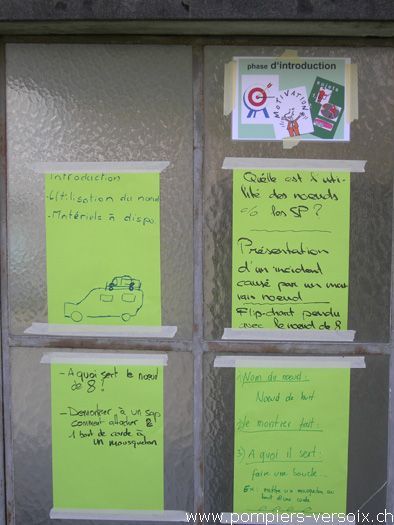 phase d'introduction
MOTIVATION
Introduction
- Utilisation du noeud
- Matériels à dispo
Quelle est l'uti-
lité des noeuds
les SP ?
Présentation
d'un incident
causé par un mau
vais noeud
Flip-chart pendu
avec le noeud de 8
- A quoi sert le noeud
de 8 ?
- Demontrer à un sap
comment attacher
1 bout de corde à
un mousqueton
1) Nom du noeud :
Noeud de huit
2) le montrer fait :
3) A quoi il sert :
faire une boucle...
Ex : mettre un mousqueton au
bout d'une corde
www.pompiers-versoix.ch